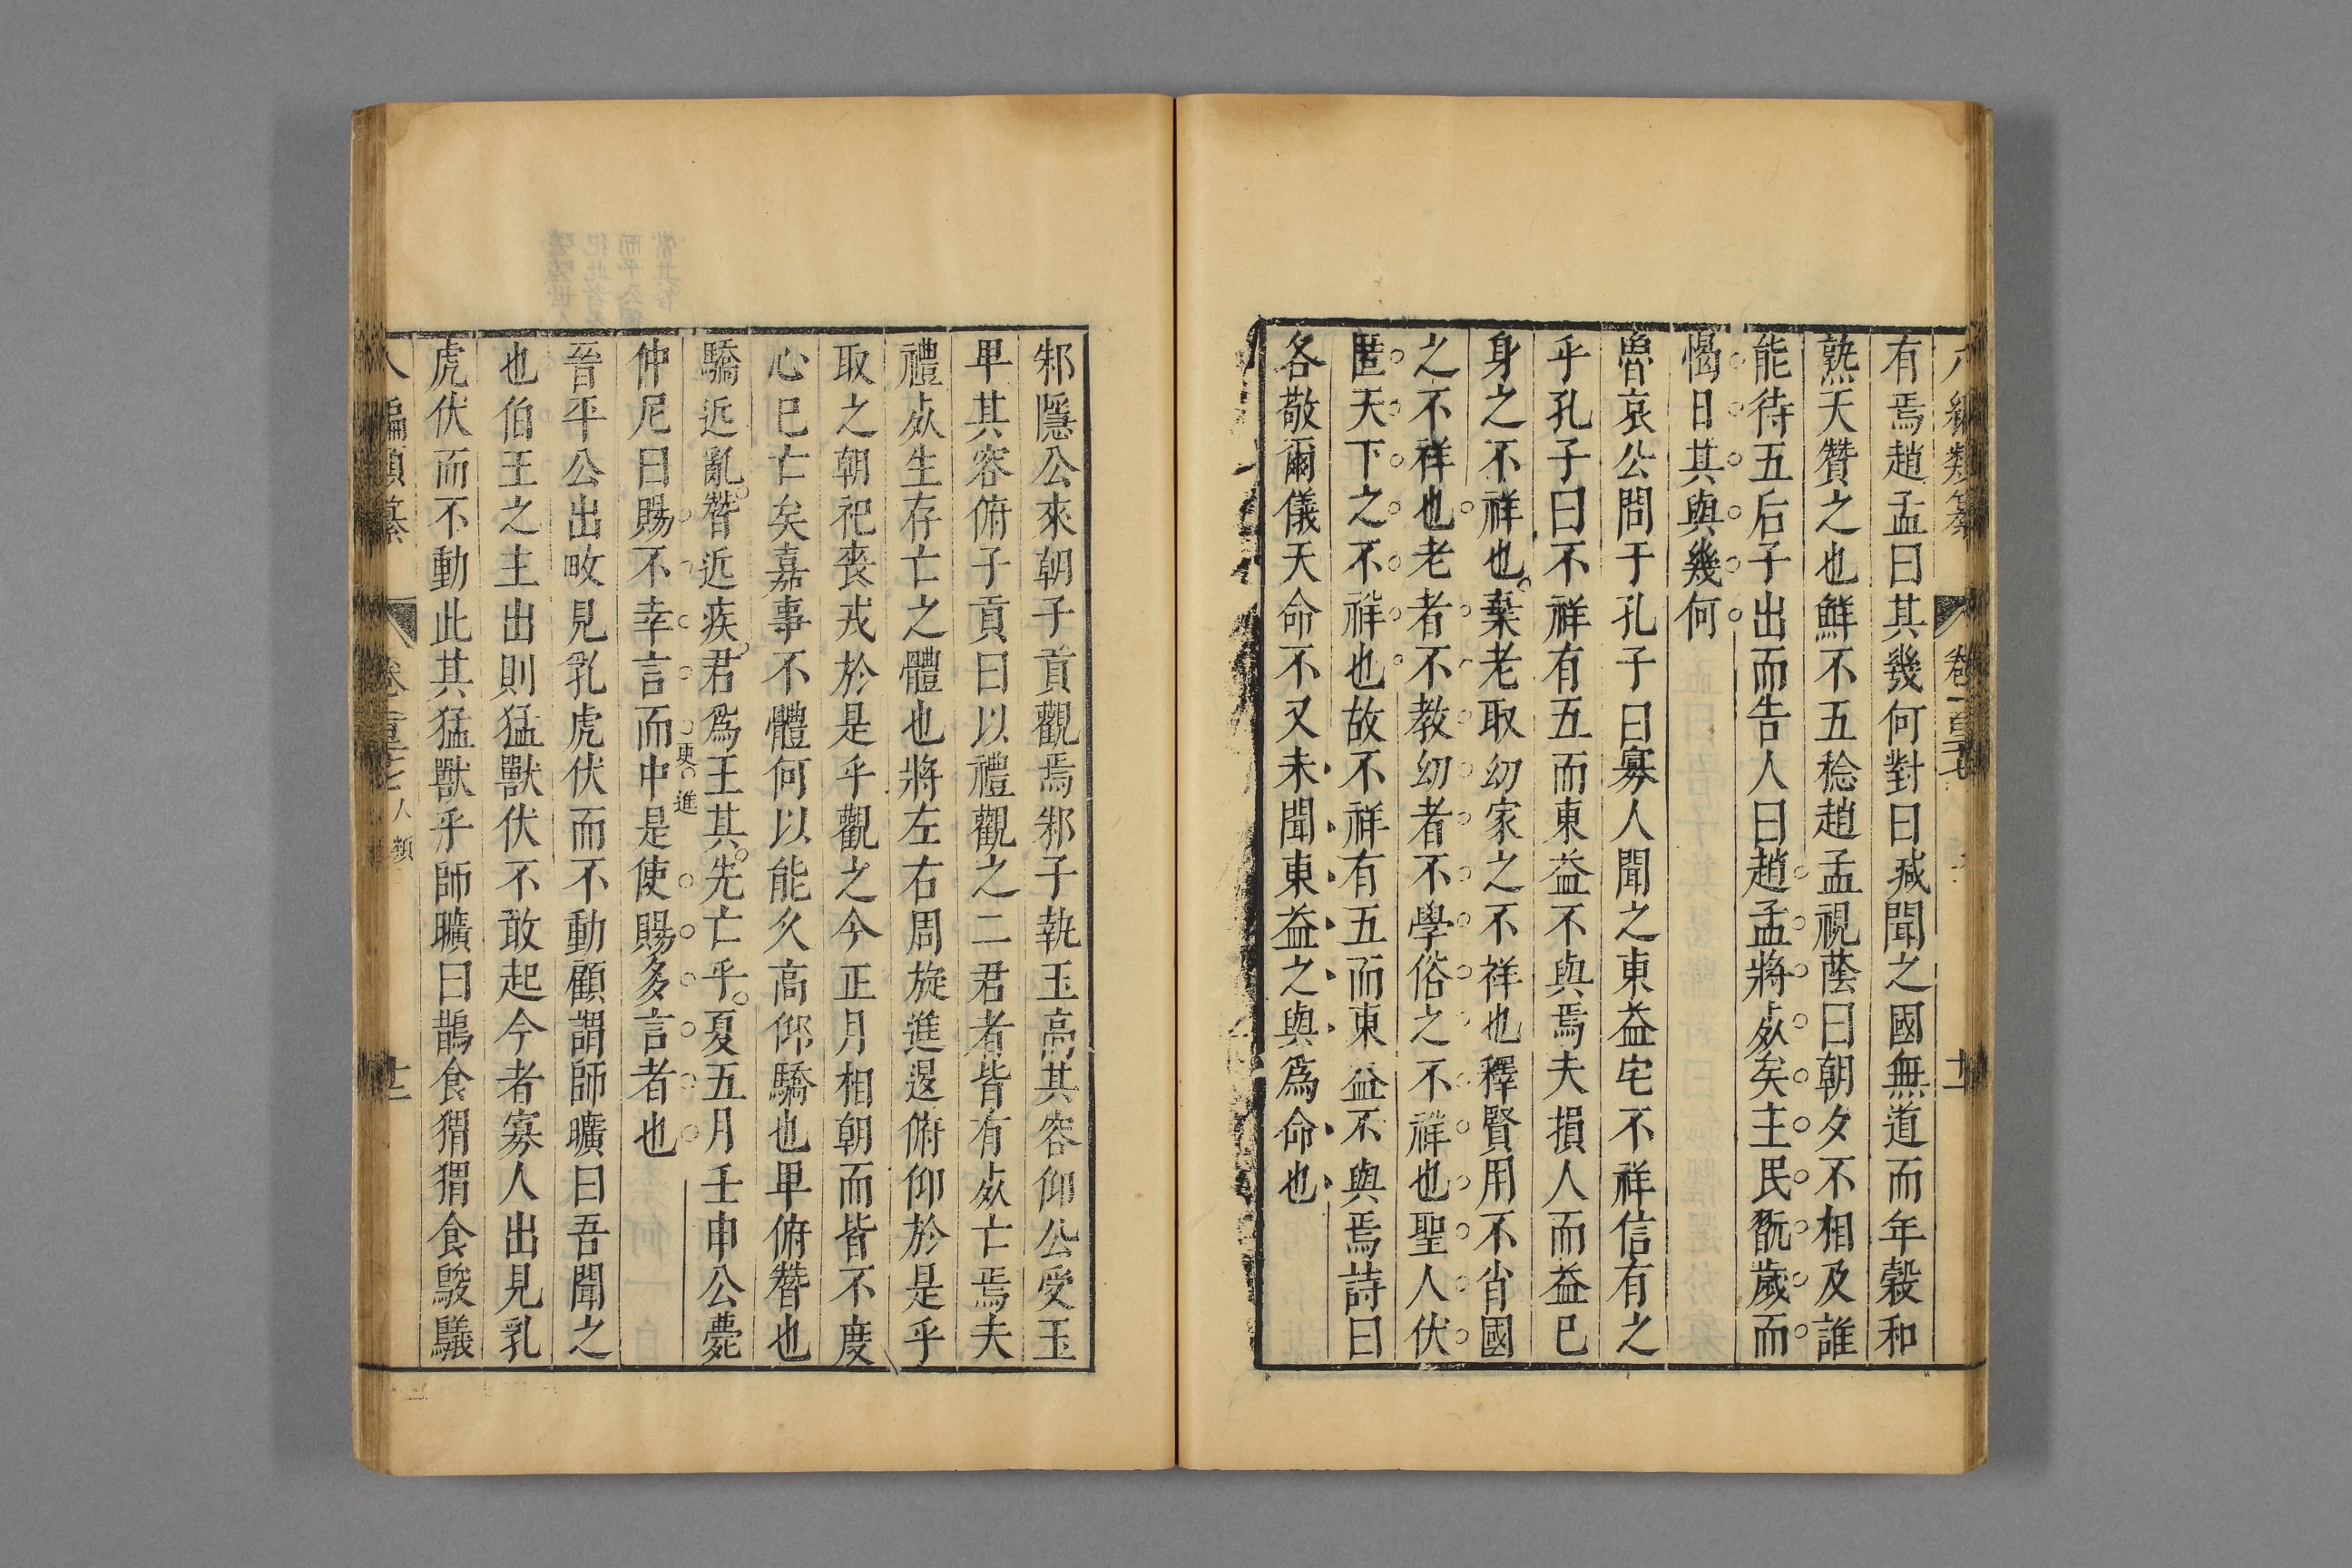 八編類纂 卷一百二十七 十一
有焉趙孟曰其幾何對曰鍼聞之國無道而年穀和
熟天贊之也鮮不五稔趙孟視蔭曰朝夕不相及誰
能待五后子出而告人曰趙孟將𣦸矣主民翫歲而
愒日其與幾何
魯哀公問于孔子曰寡人聞之東益宅不祥信有之
乎孔子曰不祥有五而東益不與焉夫損人而益已
身之不祥也棄老取幼家之不祥也釋賢用不肖國
之不祥也老者不教幼者不學俗之不祥也聖人伏
匿天下之不祥也故不祥有五而東益不與焉詩曰
各敬爾儀天命不又未聞東益之與爲命也
邾隱公來朝子貢觀焉邾子執玉高其容仰公受玉
卑其容俯子貢曰以禮觀之二君者皆有𣦸亡焉夫
禮𣦸生存亡之體也將左右周旋進退俯仰於是乎
取之朝祀喪戎於是乎觀之今正月相朝而皆不度
心已亡矣嘉事不體何以能久高仰驕也卑俯替也
驕近亂替近疾君爲王其先亡乎夏五月壬申公薨
仲尼曰賜不幸言而中是使賜多言者也
更進
晉平公出畋見乳虎伏而不動顧謂師曠曰吾聞之
也伯王之主出則猛獸伏不敢起今者寡人出見乳
虎伏而不動此其猛獸乎師曠曰鵲食猬猬食駿鸃
八編類纂 卷一百二十七 人類 十二